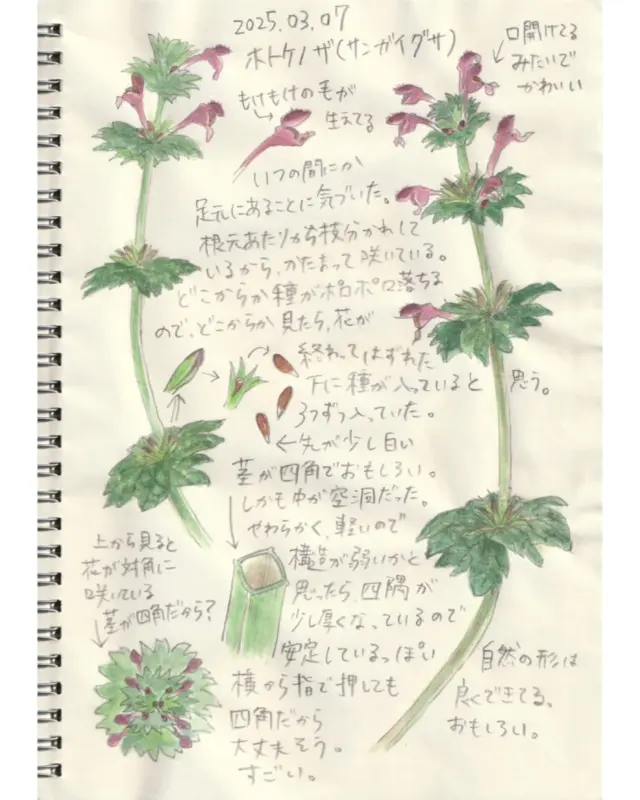 2025.03.07
ホトケノザ(サンガイグサ)
口開けてる
みたいで
かわいい
もけもけの毛が
生えてる
いつの間にか
足元にあることに気づいた。
根元あたりから枝分かれして
いるから、かたまって咲いている。
どこからか種がポロポロ落ちる
ので、どこからか見たら、花が
終わってはずれた
下に種が入っていると思う。
3つずつ入っていた。
←先が少し白い
茎が四角でおもしろい。
しかも中が空洞だった。
やわらかく、軽いので
構造が弱いかと
思ったら、四隅が
少し厚くなっているので
安定しているっぽい
横から指で押しても
四角だから
大丈夫そう。
すごい。
上から見ると
花が対角に
咲いている
茎が四角だから?
自然の形は
良くできてる、
おもしろい。